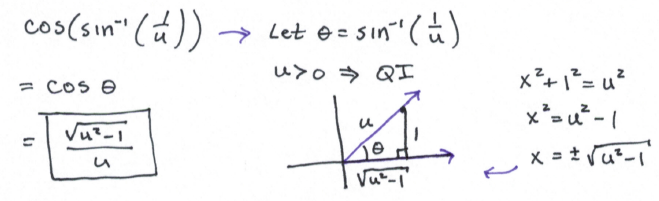 cos(sin⁻¹(1/u)) → Let θ = sin⁻¹(1/u)
= cos θ
= √(u²-1)/u
u>0 ⇒ QI
u
1
θ
√(u²-1)
x²+1²=u²
x²=u²-1
x = ±√(u²-1)